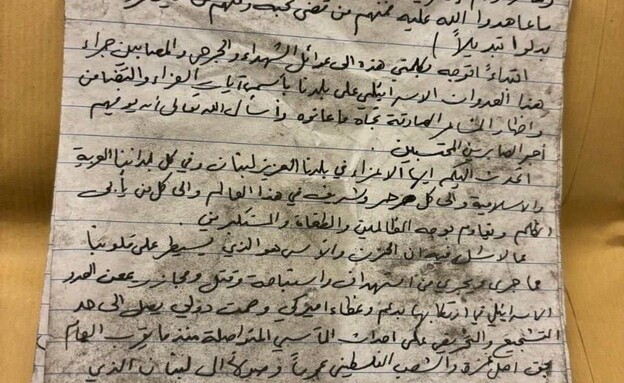 ما عاهدوا الله عليه فمنهم من قضى نحبه ومنهم من
بدلوا تبديلاً )
ابتداءً اتوجه بكلمتي هذه الى عوائل الشهداء والجرحى والمصابين جراء
هذا العدوان الاسرائيلي على بلدنا بأسمى آيات العزاء والتضامن
واظهار المشاعر الصادقة تجاه ما عانوه وأسأل الله تعالى أن يوفيهم
أجر الصابرين المحتسبين .
اتحدث اليكم ايها الأعزاء في بلدنا العزيز لبنان وفي كل بلداننا العربية
والاسلامية والى كل حر وشريف في هذا العالم والى كل من يأبى
الظلم ويقاوم بوجه الظالمين والطغاة والمستكبرين
مما لا شك فيه ان الحزن والأسى هو الذي يسيطر على قلوبنا
مما جرى ويجري من استهداف واستباحة وقتل ومجازر يمعن العدو
الاسرائيلي في ارتكابها بدعم وغطاء اميركي وصمت دولي يصل الى حد
التشجيع والتحريض على احداث المآسي المتواصلة منذ ما يقرب العام
بحق اهل غزة والشعب الفلسطيني عموماً وصولاً الى لبنان الذي